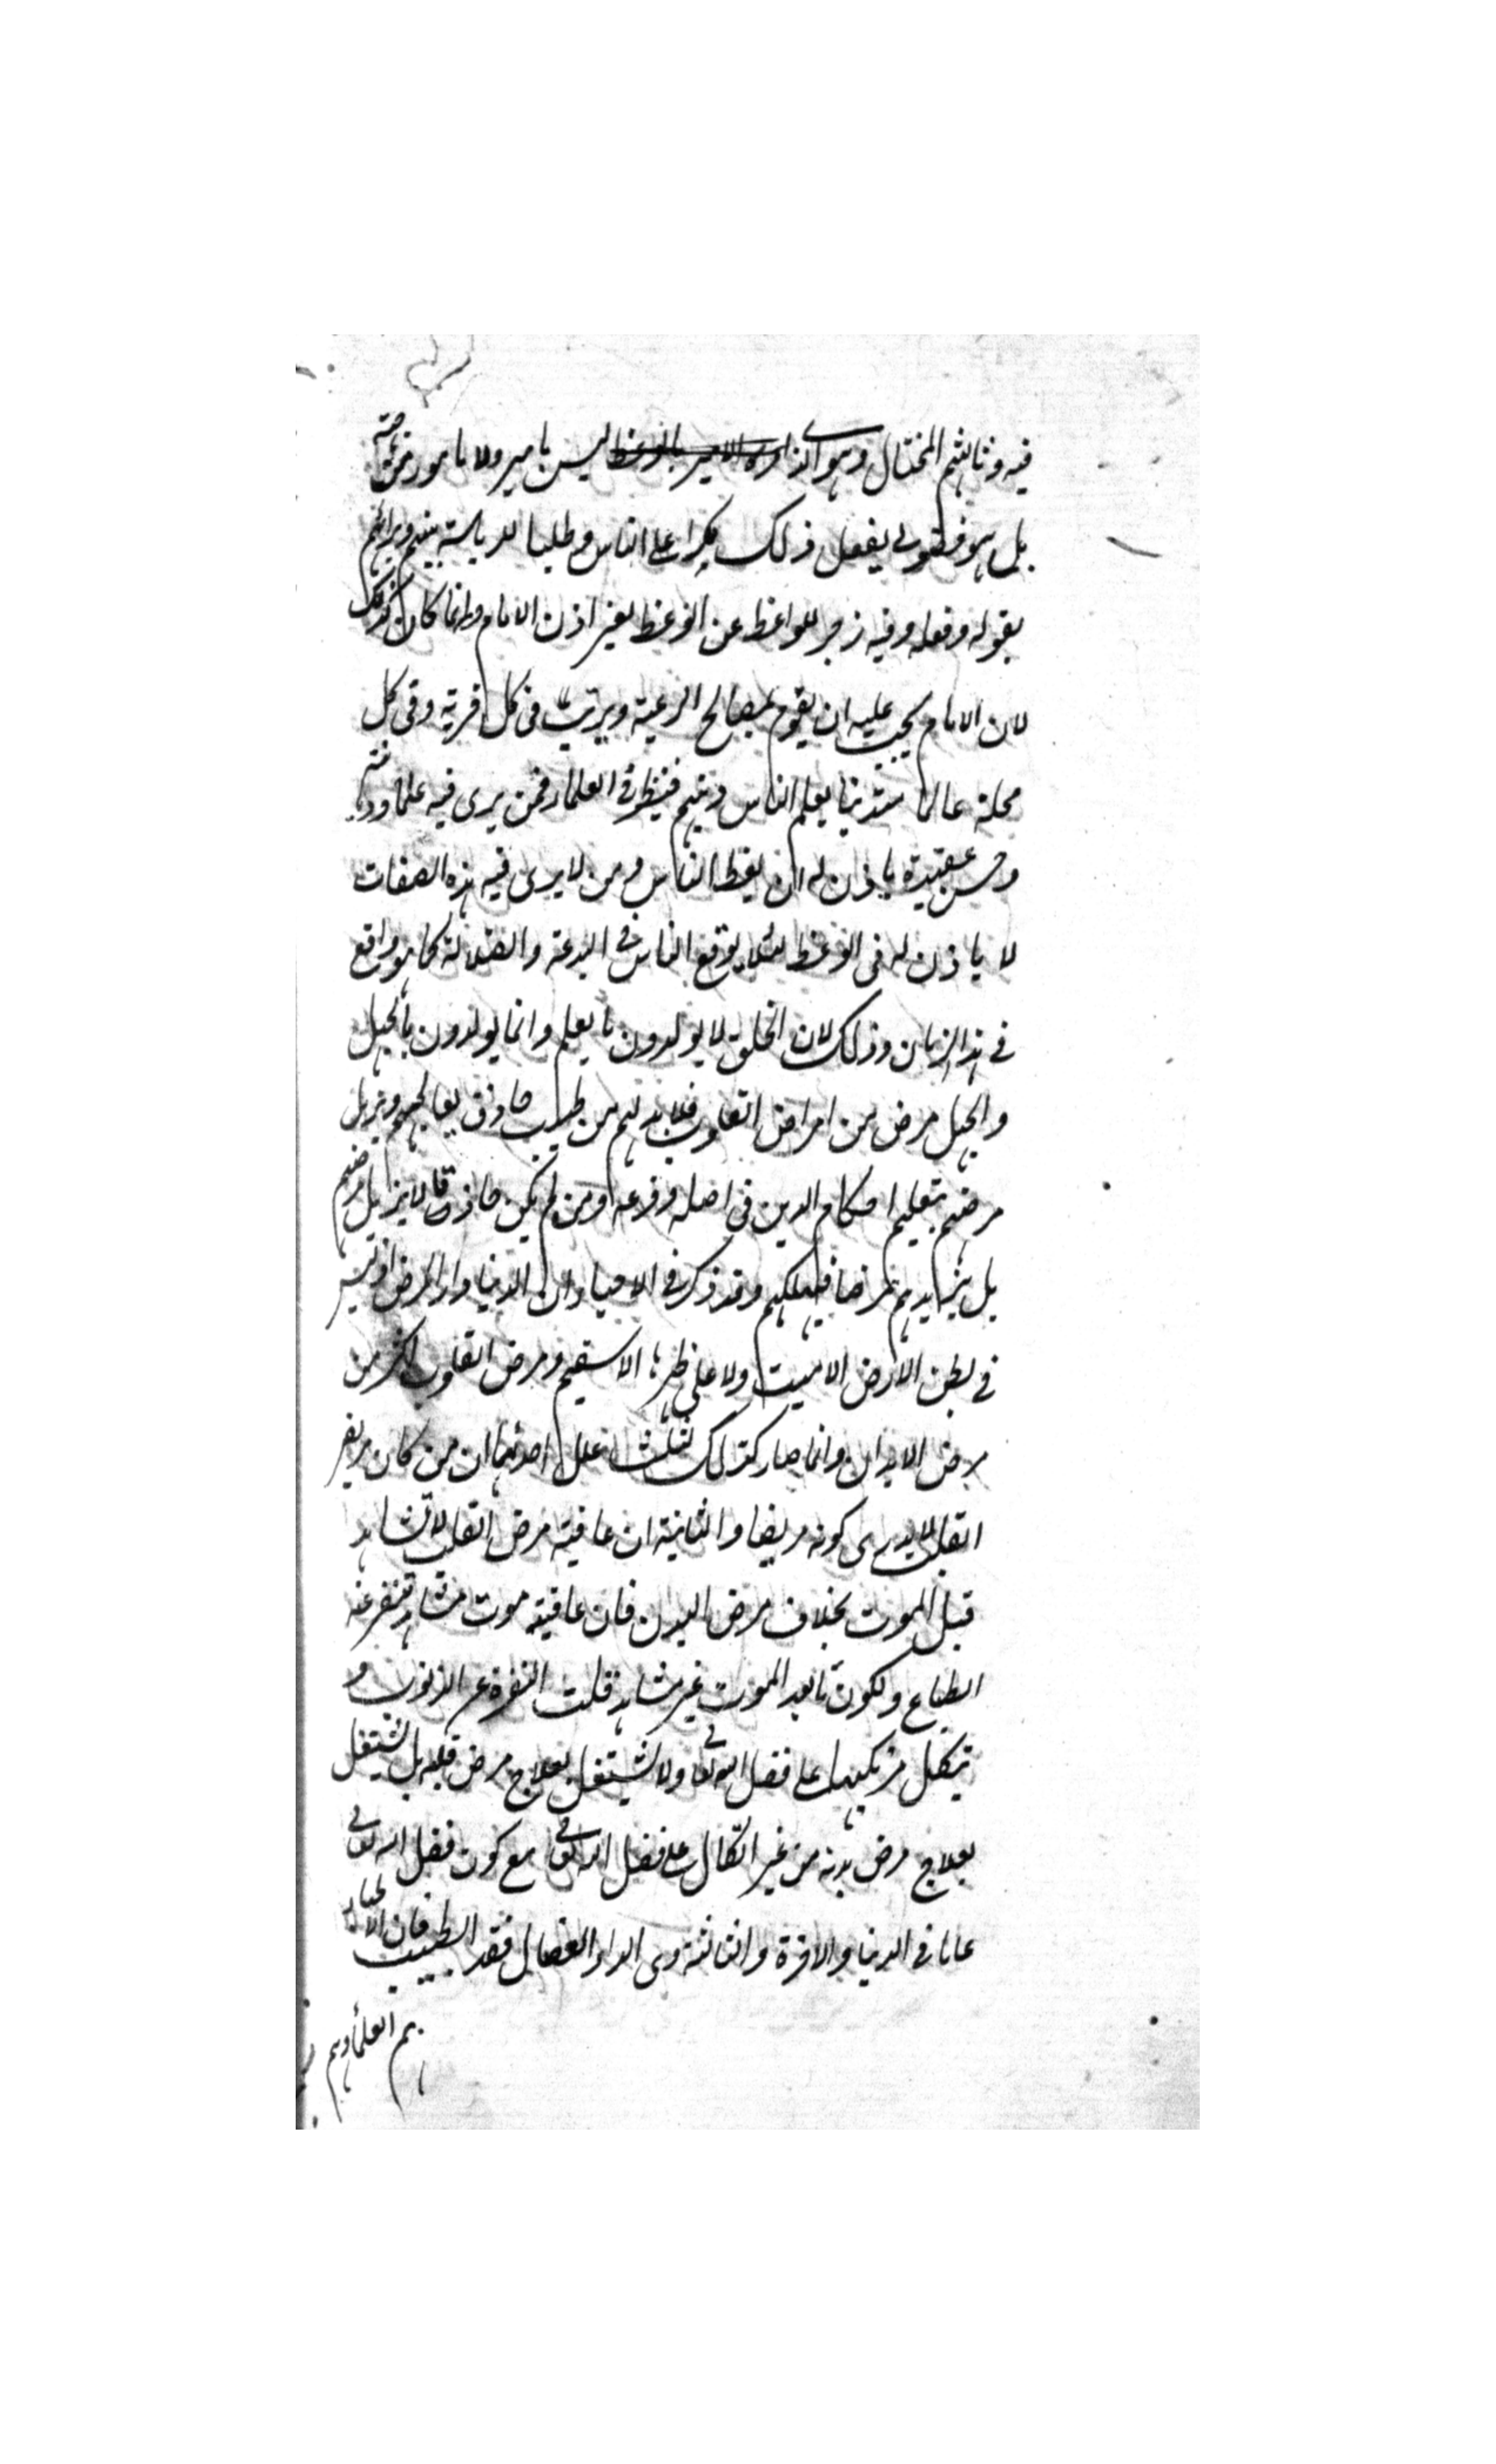 فيه وثالثهم المختال وهو الذى امره الامير بالوعظ ليس بامير ولا مامور من جهته
بل هو فضولى يفعل ذلك تكبرا على الناس وطلبا للرياسة بينهم ويرائهم
بقوله وفعله وفيه زجر للواعظ عن الوعظ بغير اذن الامام وانما كان كذلك
لان الامام يجب عليه ان يقوم بمصالح الرعية ويرتب فى كل قرية وفى كل
محلة عالما متدينا يعلم الناس دينهم فينظر فى العلماء فمن يرى فيه علما وديانة
وحسن عقيدة ياذن له ان يعظ الناس ومن لا يرى فيه هذه الصفات
لا ياذن له فى الوعظ لئلا يوقع الناس فى البدعة والضلالة كما هو واقع
فى هذا الزمان وذلك لان الخلق لا يولدون بالعلم وانما يولدون بالجهل
والجهل مرض من امراض القلوب فلا بد لهم من طبيب حاذق يعالجهم ويزيل
مرضهم بتعليم احكام الدين فى اصله وفرعه ومن لم يكن حاذقا لا يزيل مرضهم
بل يزيدهم مرضا فيهلكهم وقد ذكر فى الاحياء ان الدنيا دار المرض اذ ليس
فى بطن الارض الا ميت ولا على ظهرها الا سقيم ومرض القلوب اكثر من
مرض الابدان وانما صار كذلك لثلث علل احدىها ان من كان مريض
القلب لا يدرى كونه مريضا والثانية ان عاقبة مرض القلب لا تشاهد
قبل الموت بخلاف مرض البدن فان عاقبته موت مشاهد تنفر عنه
الطباع ولكون ما بعد الموت غير مشاهد قلت النفرة عن الذنوب و
يتكل مرتكبها على فضل الله تعالى ولا يشتغل بعلاج مرض قلبه بل يشتغل
بعلاج مرض بدنه من غير اتكال على فضل الله تعالى مع كون فضل الله تعالى
عاما فى الدنيا والاخرة والثالثة وهى الداء العضال فقد الطبيب فان الاطباء
هم العلماء وهم